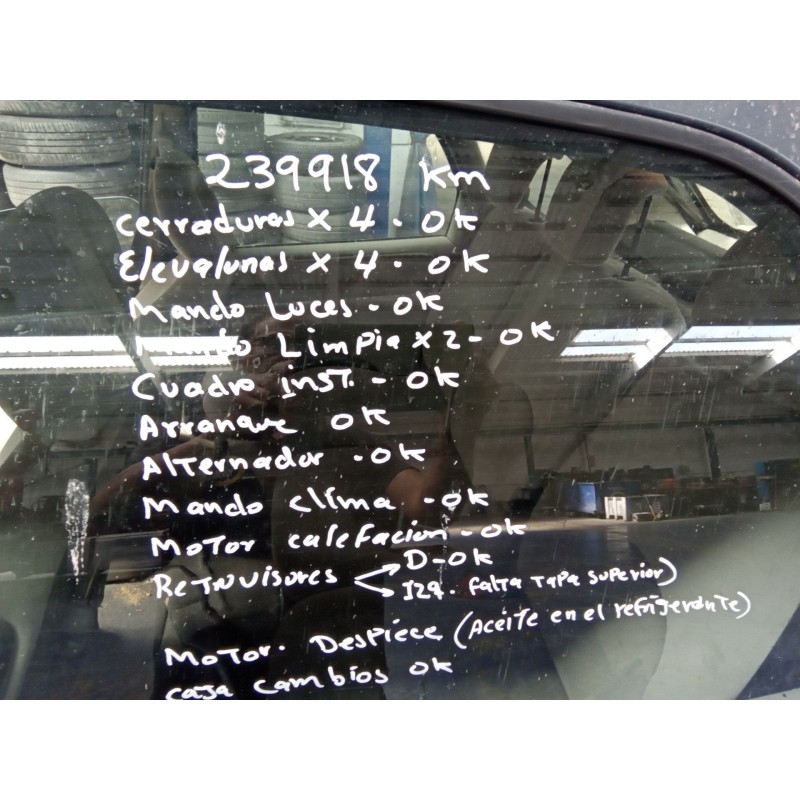 239918 Km
Cerraduras x 4 - OK
Elevalunas x 4 - OK
Mando Luces - OK
Mando Limpia x 2 - OK
Cuadro inst. - OK
Arranque OK
Alternador - OK
Mando clima - OK
Motor calefacion - OK
Retrovisores D - OK
Izq. falta tapa superior)
Motor. Despiece (Aceite en el refrigerante)
caja cambios OK